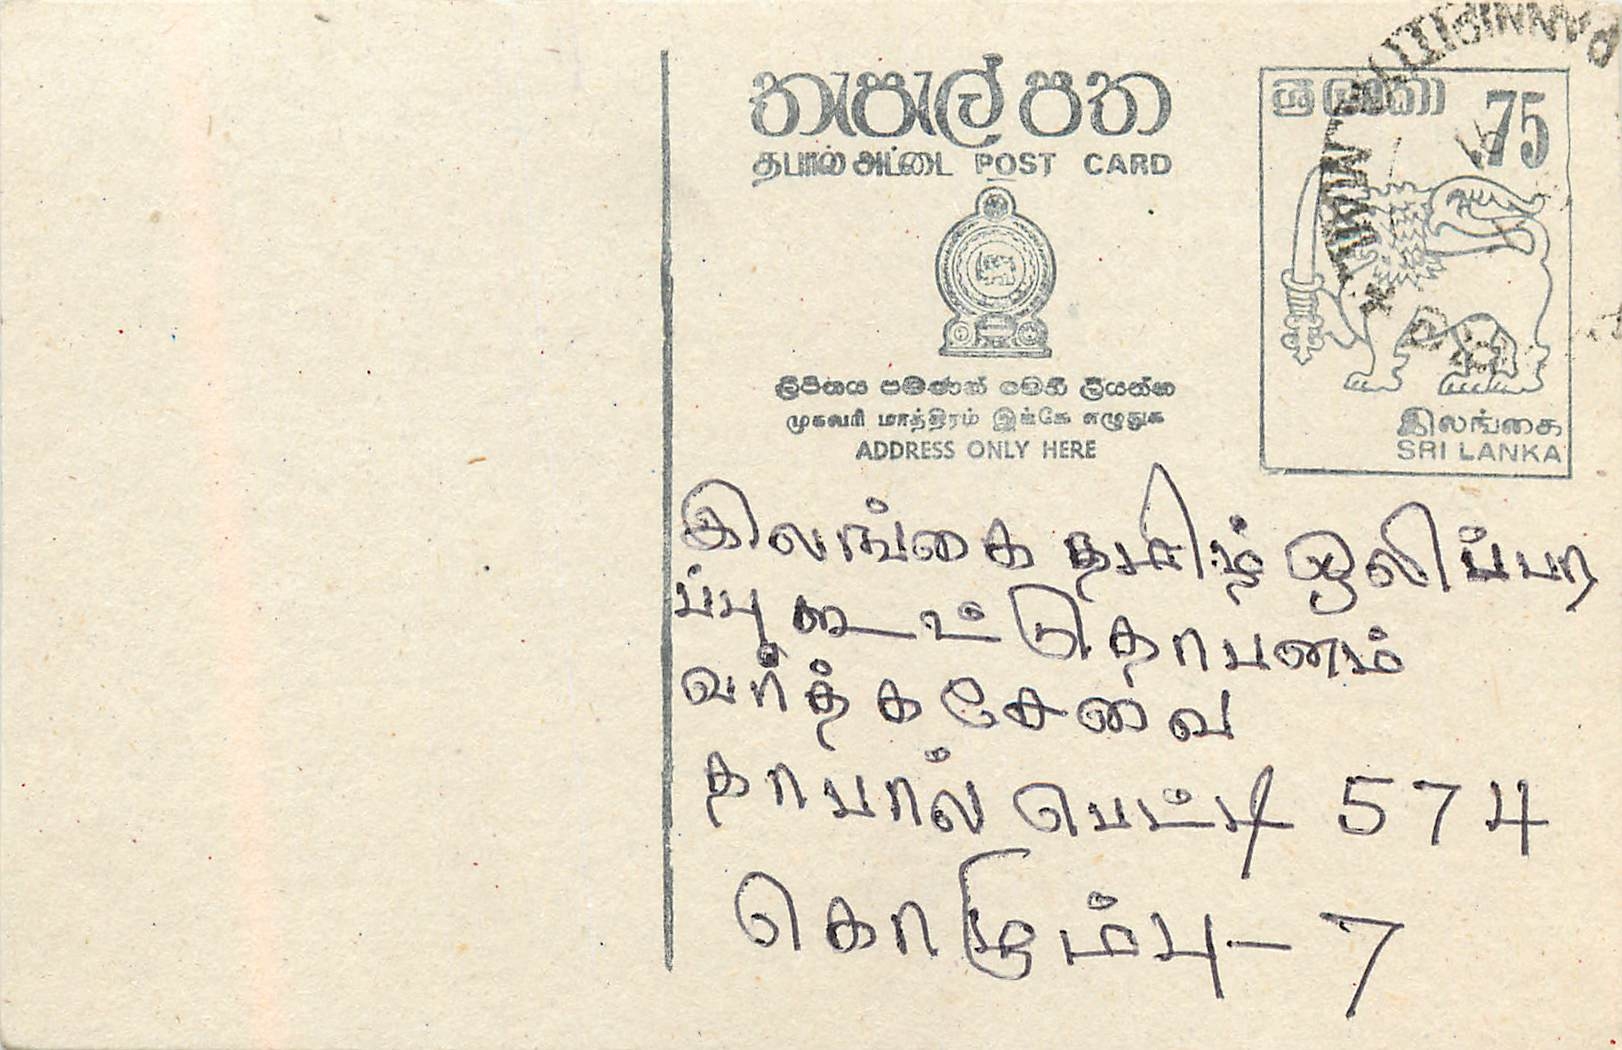 තැපැල් පත
தபால் அட்டை POST CARD
ශ්‍රී ලංකා .75
ලිපිනය පමණක් මෙහි ලියන්න
முகவரி மாத்திரம் இங்கே எழுதுக
ADDRESS ONLY HERE
இலங்கை
SRI LANKA
PANNIPITIYA
இலங்கை தமிழ் ஒலிப்பர
ப்பு கூட்டுதொபனம்
வர்த்தக சேவை
தாபால் பெட்டி 574
கொழும்பு - 7